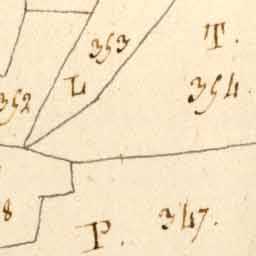 353
T.
L
354.
352
8
P.
347.